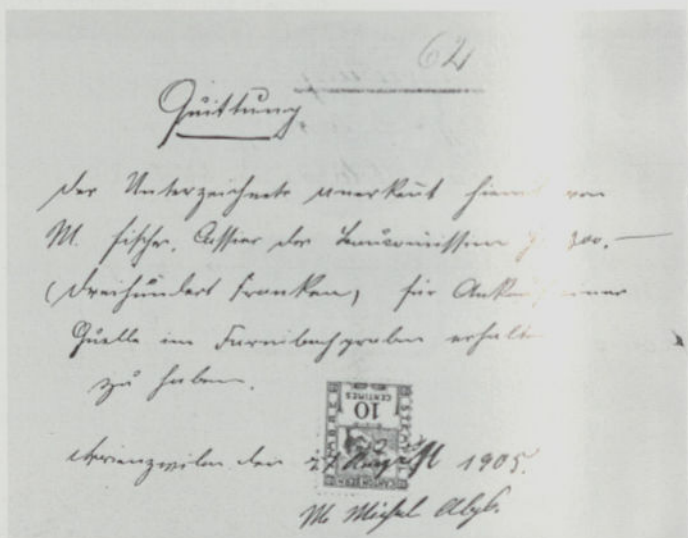 62
Quittung
Der Unterzeichnete anerkent hiemit von
M. Fischer, Cassier der Baucomission Fr. 300.—
(Dreihundert Franken) für Ankauf einer
Quelle im Farnibachgraben erhalten
zu haben.
10
CENTIMES
Brienzwiler den 27 August 1905.
M. Michel Algb.